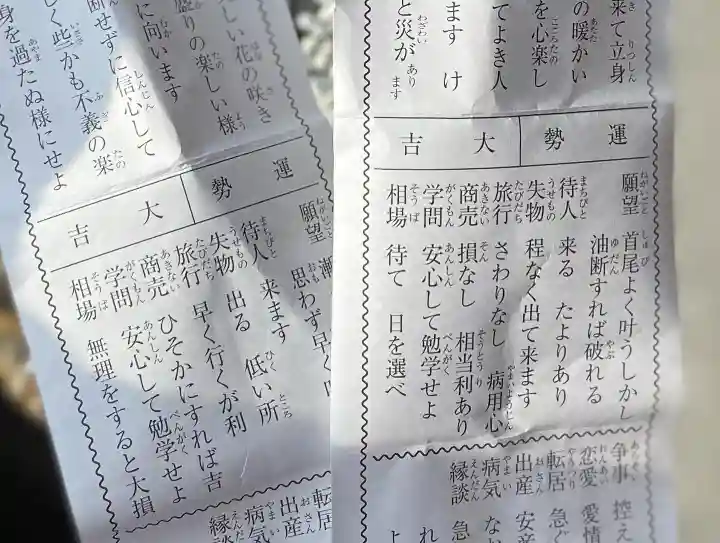 来て立身
の暖かい
を心楽し
てよき人
ます け
と災が あります
運勢 大吉
願望 首尾よく叶うしかし
油断すれば破れる
待人 来る たよりあり
失物 程なく出て来ます
旅行 さわりなし 病用心
商売 損なし 相当利あり
学問 安心して勉学せよ
相場 待て 日を選べ
争事 控え
恋愛 愛情
転居 急ぐ
出産 安産
病気
縁談 急
しい花の咲き
盛りの楽しい様
に向います
断せずに信心して
しく些かも不義の楽
身を過たぬ様にせよ
運勢 大吉
願望
思わず早く
待人 来ます
失物 出る 低い所
旅行 早く行くが利
商売 ひそかにすれば吉
学問 安心して勉学せよ
相場 無理をすると大損
転居
出産
病気
縁談